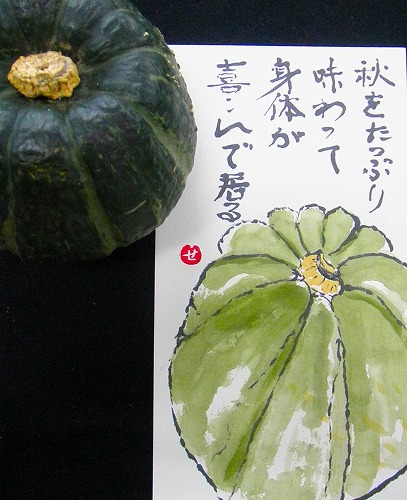 秋をたっぷり
味わって
身体が
喜こんで居る
せ